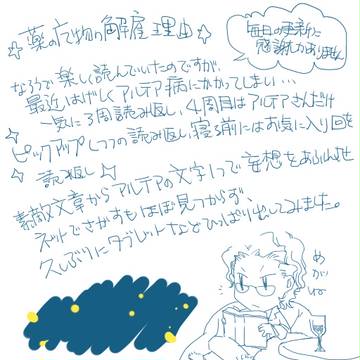 ☆薬の魔物の解雇理由☆
毎日の更新に
感謝しかありません
なろうで楽しく読んでいたのですが、
最近はげしくアルテア病にかかってしまい…
一気に3周読み返し、4周目はアルテアさんだけ
ピックアップしつつの読み返し、寝る前にはお気に入り回を
☆読み返し☆
素敵文章からアルテアの文字1つで妄想をあふれさせ
ネットでさがすもほぼ見つからず、
久しぶりにタブレットなどひっぱり出してみました。
めがね